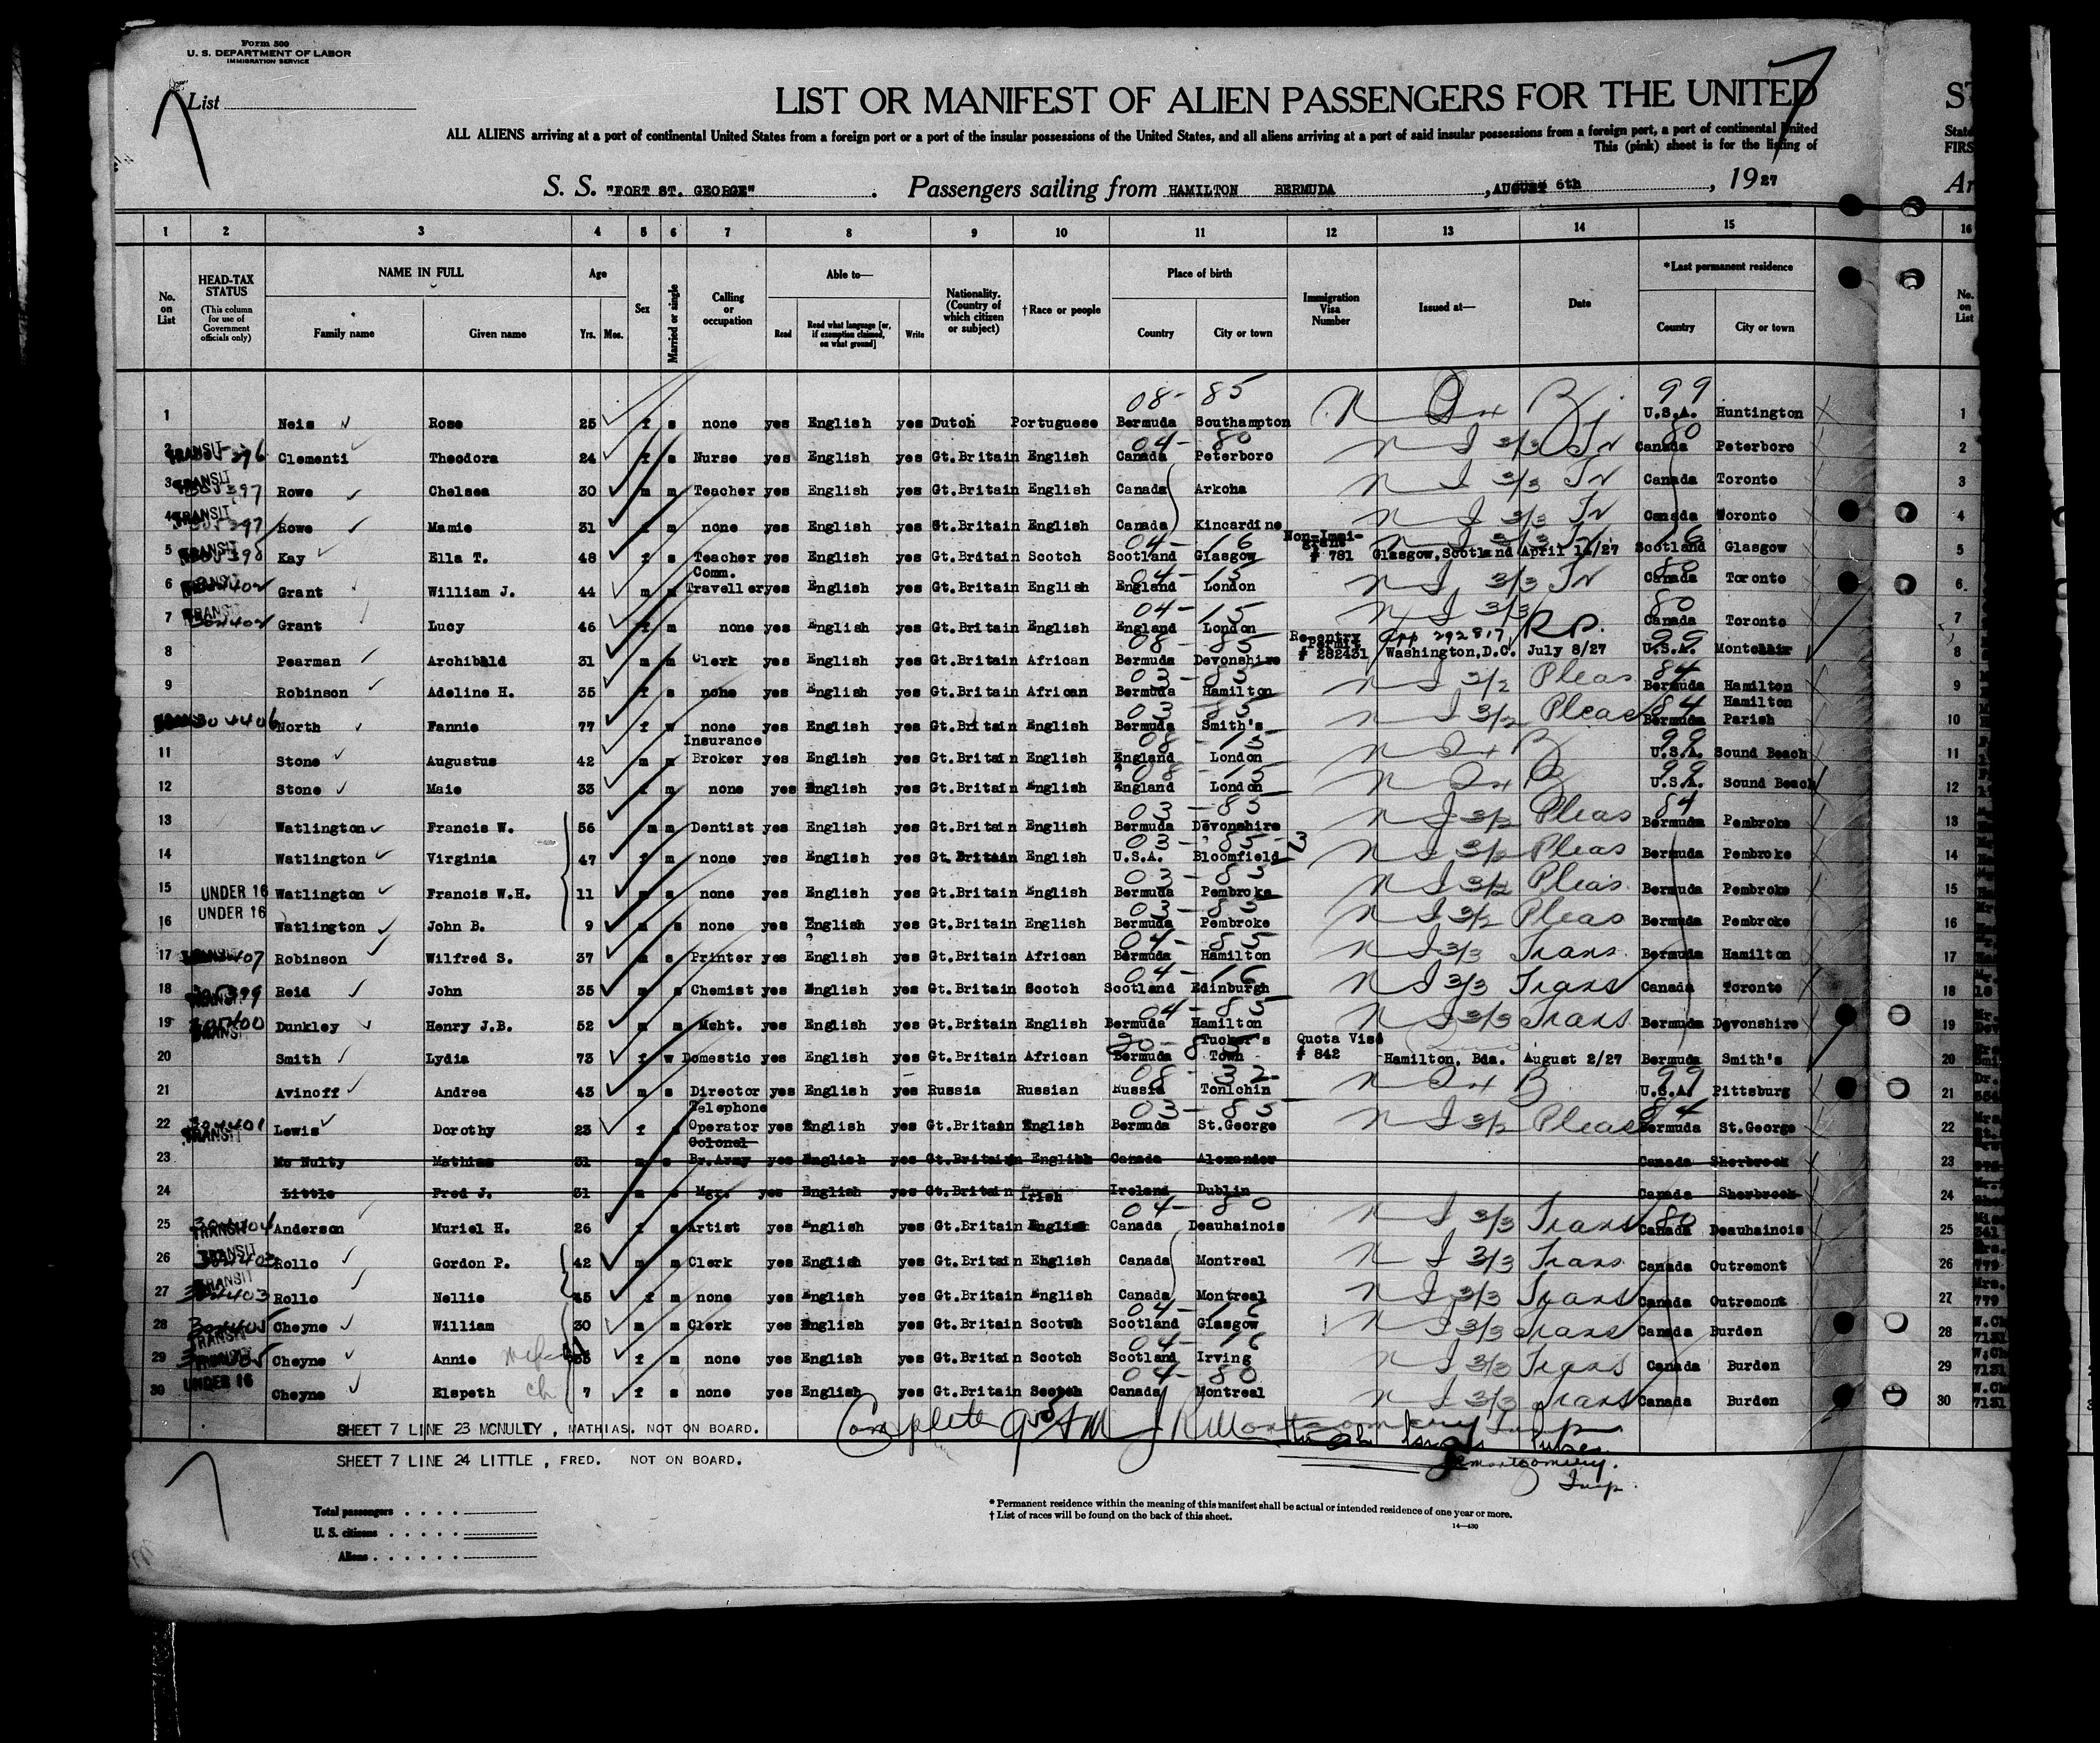 Form 500
U. S. DEPARTMENT OF LABOR
IMMIGRATION SERVICE
List
LIST OR MANIFEST OF ALIEN PASSENGERS FOR THE UNITED
ALL ALIENS arriving at a port of continental United States from a foreign port or a port of the insular possessions of the United States, and all aliens arriving at a port of said insular possessions from a foreign port, a port of continental United
This (pink) sheet is for the listing of
S. S. "FORT ST. GEORGE". Passengers sailing from HAMILTON BERMUDA, AUGUST 6th, 1927
1 2 3 4 5 6 7 8 9 10 11 12 13 14 15 16
No. on List
HEAD-TAX STATUS (This column for use of Government officials only)
NAME IN FULL Family name Given name
Age Yrs. Mos.
Sex
Married or single
Calling or occupation
Able to— Read Read what language [or, if exemption claimed, on what ground] Write
Nationality. (Country of which citizen or subject)
†Race or people
Place of birth Country City or town
Immigration Visa Number
Issued at—
Date
*Last permanent residence Country City or town
No. on List
08-85 99
1 Neis Rose 25 f s none yes English yes Dutch Portuguese Bermuda Southampton U.S.A. Huntington 1
04-80 80
2 TRANSIT Clementi Theodora 24 f s Nurse yes English yes Gt.Britain English Canada Peterboro N I 3/3 Tr Canada Peterboro 2
3 TRANSIT Rowe Chelsea 30 m m Teacher yes English yes Gt.Britain English Canada Arkona N I 3/3 Tr Canada Toronto 3
4 TRANSIT Rowe Mamie 31 f m none yes English yes Gt.Britain English Canada Kincardine N I 3/3 Tr Canada Toronto 4
04-16 Non-Immigrant 16
5 TRANSIT Kay Ella T. 48 f s Teacher yes English yes Gt.Britain Scotch Scotland Glasgow # 781 Glasgow, Scotland April 14/27 Scotland Glasgow 5
Comm. 04-15 80
6 Grant William J. 44 m m Traveller yes English yes Gt.Britain English England London N I 3/3 Tr Canada Toronto 6
04-15 80
7 TRANSIT Grant Lucy 46 f m none yes English yes Gt.Britain English England London N I 3/3 Canada Toronto 7
08-85 Re-entry Permit App 292817 R.P. 99
8 Pearman Archibald 31 m m Clerk yes English yes Gt.Britain African Bermuda Devonshire # 282431 Washington, D.C. July 8/27 U.S.A. Montclair 8
03-85 84
9 Robinson Adeline H. 35 f s none yes English yes Gt.Britain African Bermuda Hamilton N I 3/2 Pleas Bermuda Hamilton 9
03-85 84 Hamilton
10 North Fannie 77 f w none yes English yes Gt.Britain English Bermuda Smith's N I 3/2 Pleas Bermuda Parish 10
Insurance 08-15 99
11 Stone Augustus 42 m m Broker yes English yes Gt.Britain English England London U.S.A. Sound Beach 11
08-15 99
12 Stone Maie 33 f m none yes English yes Gt.Britain English England London U.S.A. Sound Beach 12
03-85 84
13 Watlington Francis W. 56 m m Dentist yes English yes Gt.Britain English Bermuda Devonshire N I 3/2 Pleas Bermuda Pembroke 13
03-85
14 Watlington Virginia 47 f m none yes English yes Gt.Britain English U.S.A. Bloomfield N I 3/2 Pleas Bermuda Pembroke 14
03-85
15 UNDER 16 Watlington Francis W.H. 11 m s none yes English yes Gt.Britain English Bermuda Pembroke N I 3/2 Pleas Bermuda Pembroke 15
03-85
16 UNDER 16 Watlington John B. 9 m s none yes English yes Gt.Britain English Bermuda Pembroke N I 3/2 Pleas Bermuda Pembroke 16
04-85
17 Robinson Wilfred S. 37 m s Printer yes English yes Gt.Britain African Bermuda Hamilton N I 3/3 Trans Bermuda Hamilton 17
04-16
18 TRANSIT Reid John 35 m s Chemist yes English yes Gt.Britain Scotch Scotland Edinburgh N I 3/3 Trans Canada Toronto 18
04-85
19 TRANSIT Dunkley Henry J.B. 52 m m Mcht. yes English yes Gt.Britain English Bermuda Hamilton N I 3/3 Trans Bermuda Devonshire 19
Tucker's Quota Visa
20 Smith Lydia 73 f w Domestic yes English yes Gt.Britain African Bermuda Town # 842 Hamilton, Bda. August 2/27 Bermuda Smith's 20
08-32 99
21 Avinoff Andrea 43 m s Director yes English yes Russia Russian Russia Tonlchin U.S.A. Pittsburg 21
Telephone 03-85 84
22 TRANSIT Lewis Dorothy 23 f s Operator yes English yes Gt.Britain English Bermuda St.George N I 3/2 Pleas Bermuda St.George 22
Colonel
23 Mc Nulty Mathias 31 m s Br.Army yes English yes Gt.Britain English Canada Alexander Canada Sherbrook 23
24 Little Fred J. 31 m s Mgr. yes English yes Gt.Britain Irish Ireland Dublin Canada Sherbrook 24
04-80 80
25 TRANSIT Anderson Muriel H. 26 f s Artist yes English yes Gt.Britain English Canada Deauhainois N I 3/3 Trans Canada Deauhainois 25
26 TRANSIT Rollo Gordon P. 42 m m Clerk yes English yes Gt.Britain English Canada Montreal N I 3/3 Trans Canada Outremont 26
27 TRANSIT Rollo Nellie 45 f m none yes English yes Gt.Britain English Canada Montreal N I 3/3 Trans Canada Outremont 27
04-16
28 TRANSIT Cheyne William 30 m m Clerk yes English yes Gt.Britain Scotch Scotland Glasgow N I 3/3 Trans Canada Burden 28
04-16
29 Cheyne Annie f m none yes English yes Gt.Britain Scotch Scotland Irving N I 3/3 Trans Canada Burden 29
04-80
30 UNDER 16 Cheyne Elspeth ch 7 f s none yes English yes Gt.Britain Scotch Canada Montreal N I 3/3 Trans Canada Burden 30
SHEET 7 LINE 23 MCNULTY, MATHIAS. NOT ON BOARD.
Complete
SHEET 7 LINE 24 LITTLE, FRED. NOT ON BOARD.
Montgomery
Insp.
Total passengers
U. S. citizens
Aliens
* Permanent residence within the meaning of this manifest shall be actual or intended residence of one year or more.
† List of races will be found on the back of this sheet.
14—430